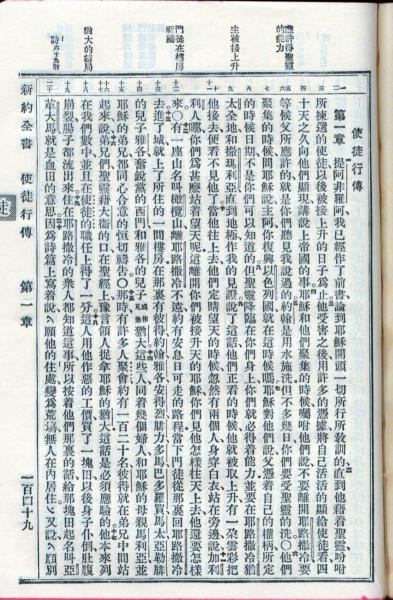 應許得聖靈
的能力
主被接上升
門徒在樓房
祈禱
猶大的結局
使徒行傳
第一章 提阿非羅阿我已經作了前書論到耶穌開頭一切所行所教訓的直到他藉着聖靈吩咐
所揀選的使徒以後被接上升的日子爲止他受害之後用許多的憑據將自己活活的顯給使徒看四
十天之久向他們顯現講說上帝國的事耶穌和他們聚集的時候囑咐他們說不要離開耶路撒冷要
等候父所應許的就是你們聽見我說過的約翰是用水施洗但不多幾日你們要受聖靈的洗○他們
聚集的時候問耶穌說主阿你復興以色列國就在這時候嗎耶穌對他們說父憑着自己的權柄所定
的時候日期不是你們可以知道的但聖靈降臨在你們身上你們就必得着能力並要在耶路撒冷猶
太全地和撒瑪利亞直到地極作我的見證說了這話他們正看的時候他就被取上升有一朵雲彩把
他接去便看不見他了當他往上去他們定睛望天的時候忽然有兩個人身穿白衣站在旁邊說加利
利人哪你們爲甚麼站着望天呢這離開你們被接升天的耶穌你們見他怎樣往天上去他還要怎樣
來○有一座山名叫橄欖山離耶路撒冷不遠約有安息日可走的路程當下門徒從那裏回耶路撒冷
去進了城就上了所住的一間樓房在那裏有彼得約翰雅各安得烈腓力多馬巴多羅買馬太亞勒腓
的兒子雅各奮銳黨的西門和雅各的兒子猶大這些人同着幾個婦人和耶穌的母親馬利亞並
耶穌的弟兄都同心合意的恆切禱告○那時有許多人聚會約有一百二十名彼得就在弟兄中間站
起來說弟兄們聖靈藉大衛的口在聖經上豫言領人捉拿耶穌的猶大這話是必須應驗的他本來列
在我們數中並且在使徒的職任上得了一分這人用他作惡的工價買了一塊田以後身子仆倒肚腹
崩裂腸子都流出來住在耶路撒冷的衆人都知道這事所以按着他們那裏的話給那塊田起名叫亞
革大馬就是血田的意思因爲詩篇上寫着說願他的住處變爲荒場無人在內居住又說願別
新約全書 使徒行傳 第一章 一百四十九